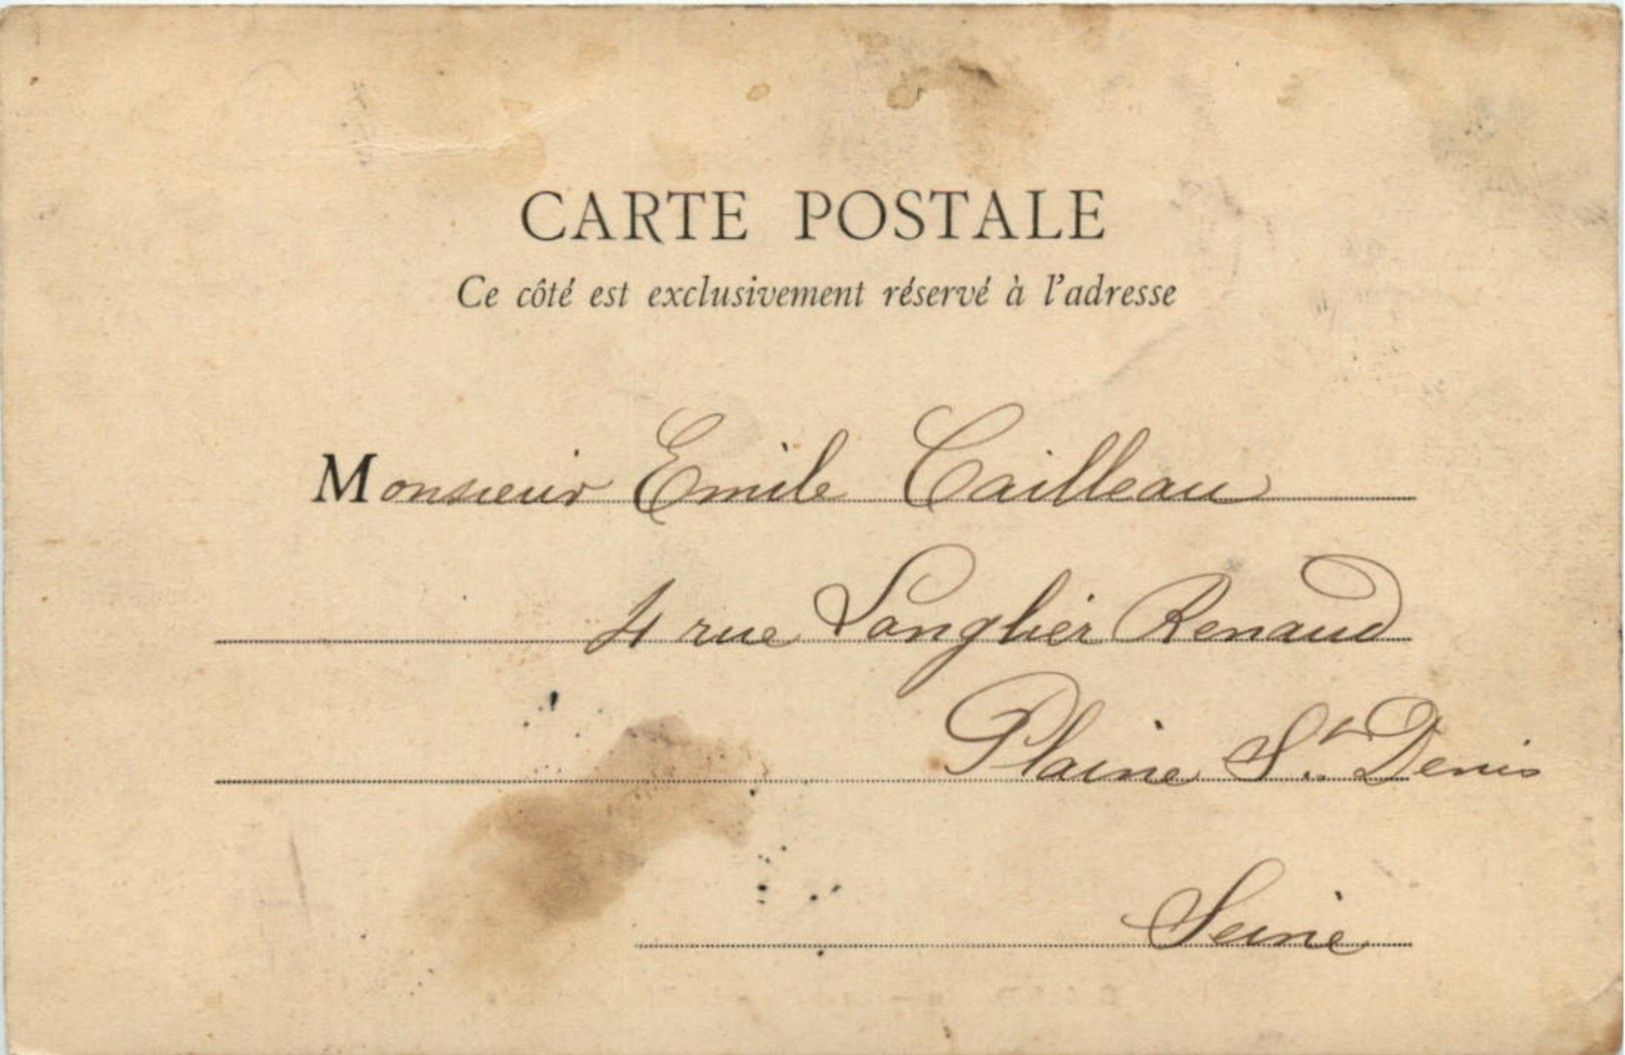 CARTE POSTALE
Ce côté est exclusivement réservé à l'adresse
Monsieur Emile Cailleau
4 rue Langlier Renaud
Plaine St. Denis
Seine